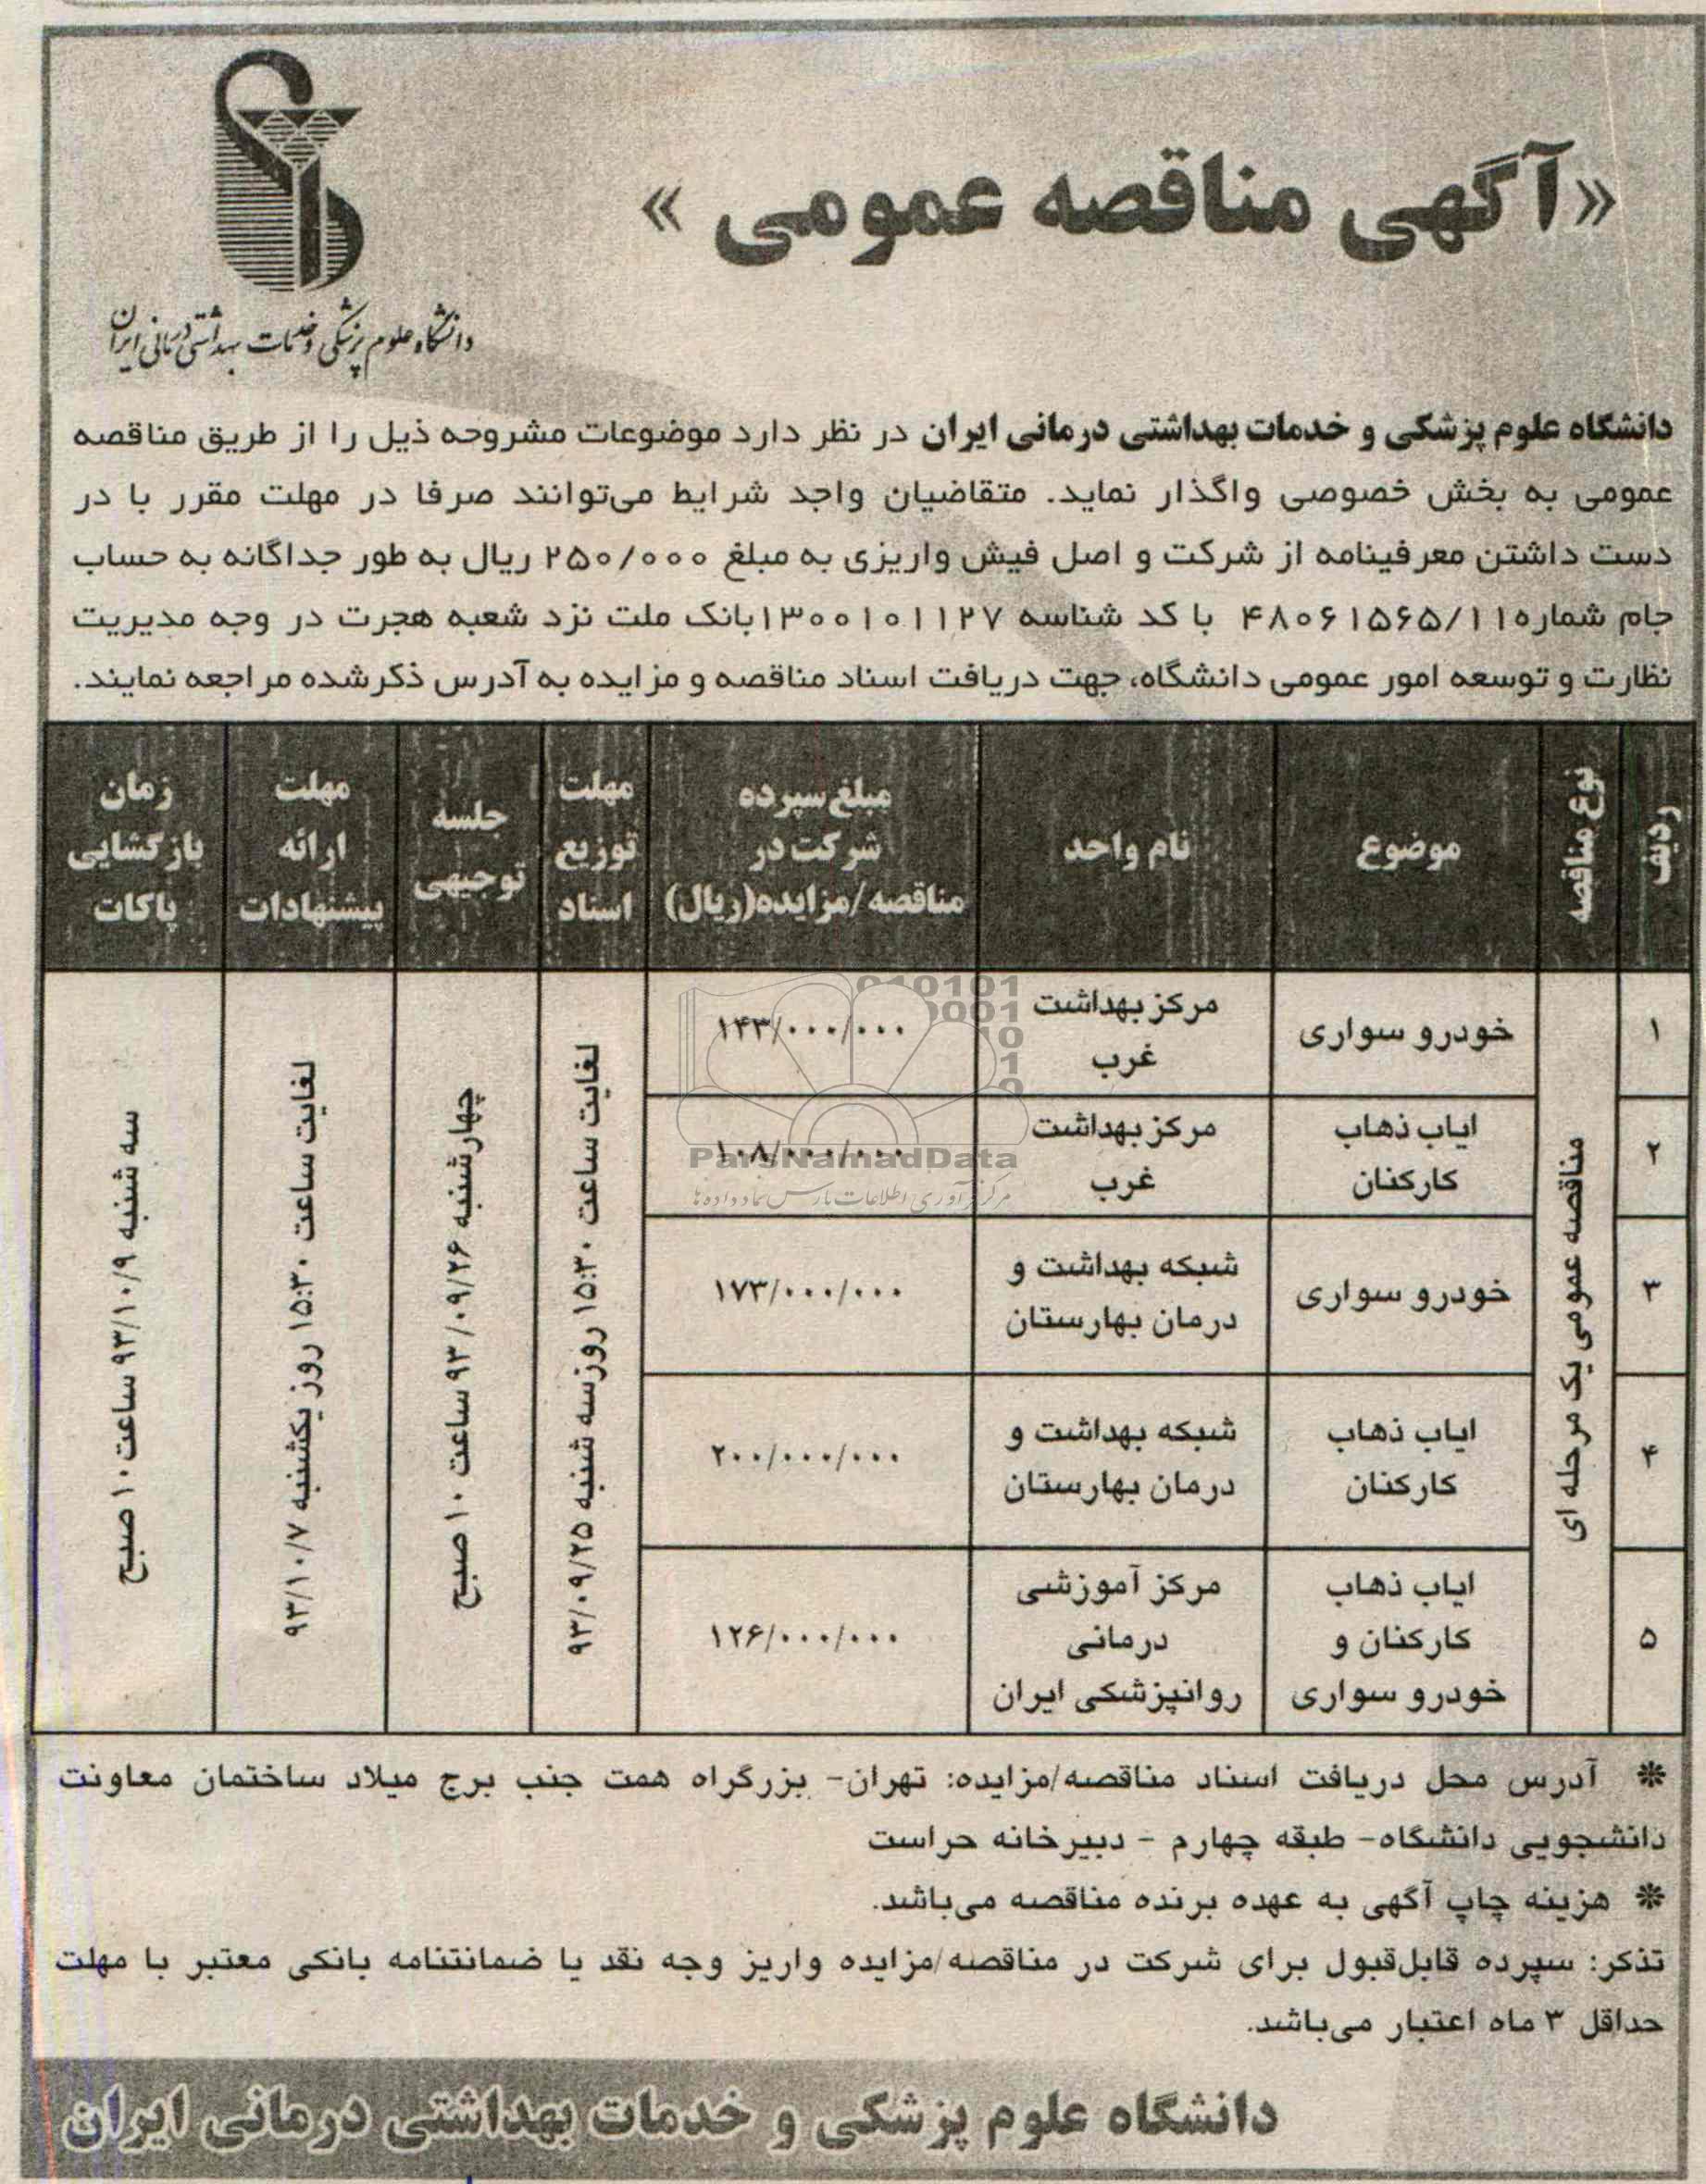 «آگهی مناقصه عمومی»
دانشگاه علوم پزشکی و خدمات بهداشتی درمانی ایران
دانشگاه علوم پزشکی و خدمات بهداشتی درمانی ایران در نظر دارد موضوعات مشروحه ذیل را از طریق مناقصه
عمومی به بخش خصوصی واگذار نماید. متقاضیان واجد شرایط می‌توانند صرفا در مهلت مقرر با در
دست داشتن معرفینامه از شرکت و اصل فیش واریزی به مبلغ ۲۵۰/۰۰۰ ریال به طور جداگانه به حساب
جام شماره۴۸۰۶۱۵۶۵/۱۱ با کد شناسه ۱۳۰۰۱۰۱۱۲۷بانک ملت نزد شعبه هجرت در وجه مدیریت
نظارت و توسعه امور عمومی دانشگاه، جهت دریافت اسناد مناقصه و مزایده به آدرس ذکرشده مراجعه نمایند.
ردیف
نوع مناقصه
موضوع
نام واحد
مبلغ سپرده
شرکت در
مناقصه/مزایده(ریال)
مهلت
توزیع
اسناد
جلسه
توجیهی
مهلت
ارائه
پیشنهادات
زمان
بازگشایی
پاکات
مناقصه عمومی یک مرحله ای
۱
خودرو سواری
مرکز بهداشت
غرب
۱۴۳/۰۰۰/۰۰۰
۲
ایاب ذهاب
کارکنان
مرکز بهداشت
غرب
۱۰۸/۰۰۰/۰۰۰
۳
خودرو سواری
شبکه بهداشت و
درمان بهارستان
۱۷۳/۰۰۰/۰۰۰
۴
ایاب ذهاب
کارکنان
شبکه بهداشت و
درمان بهارستان
۲۰۰/۰۰۰/۰۰۰
۵
ایاب ذهاب
کارکنان و
خودرو سواری
مرکز آموزشی
درمانی
روانپزشکی ایران
۱۲۶/۰۰۰/۰۰۰
لغایت ساعت ۱۵:۳۰ روز سه شنبه ۹۳/۰۹/۲۵
چهارشنبه ۹۳/۰۹/۲۶ ساعت ۱۰ صبح
لغایت ساعت ۱۵:۳۰ روز یکشنبه ۹۳/۱۰/۷
سه شنبه ۹۳/۱۰/۹ ساعت ۱۰ صبح
ParsNamadData
مرکز آوری اطلاعات پارس نماد داده ها
❋ آدرس محل دریافت اسناد مناقصه/مزایده: تهران- بزرگراه همت جنب برج میلاد ساختمان معاونت
دانشجویی دانشگاه- طبقه چهارم - دبیرخانه حراست
❋ هزینه چاپ آگهی به عهده برنده مناقصه می‌باشد.
تذکر: سپرده قابل‌قبول برای شرکت در مناقصه/مزایده واریز وجه نقد یا ضمانتنامه بانکی معتبر با مهلت
حداقل ۳ ماه اعتبار می‌باشد.
دانشگاه علوم پزشکی و خدمات بهداشتی درمانی ایران